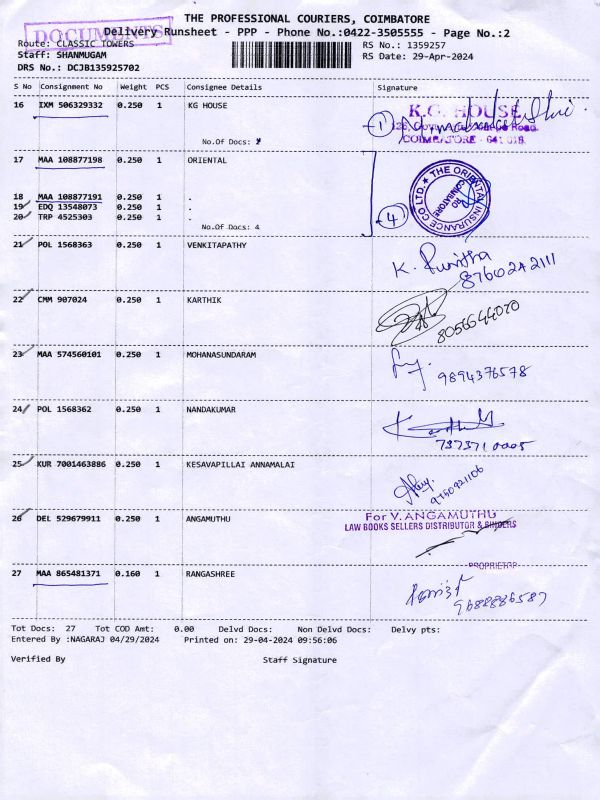 THE PROFESSIONAL COURIERS, COIMBATORE
DOCUMENTS
Delivery Runsheet - PPP - Phone No.:0422-3505555 - Page No.:2
Route: CLASSIC TOWERS
RS No.: 1359257
Staff: SHANMUGAM
RS Date: 29-Apr-2024
DRS No.: DCJB135925702
S No Consignment No Weight PCS Consignee Details Signature
16 IXM 506329332 0.250 1 KG HOUSE
K.G. HOUSE
1
COIMBATORE - 641 018.
No.Of Docs: 1
17 MAA 108877198 0.250 1 ORIENTAL
18 MAA 108877191 0.250 1 .
19 EDQ 13548073 0.250 1 .
20 TRP 4525303 0.250 1 .
No.Of Docs: 4
4
THE ORIENTAL INSURANCE CO LTD. ★
RO
COIMBATORE
21 POL 1568363 0.250 1 VENKITAPATHY
K. Punitha
8760242111
22 CMM 907024 0.250 1 KARTHIK
8056644020
23 MAA 574560101 0.250 1 MOHANASUNDARAM
9894376578
24 POL 1568362 0.250 1 NANDAKUMAR
7373710005
25 KUR 7001463886 0.250 1 KESAVAPILLAI ANNAMALAI
9760921106
26 DEL 529679911 0.250 1 ANGAMUTHU
For V. ANGAMUTHU
LAW BOOKS SELLERS DISTRIBUTOR & BINDERS
PROPRIETOR
27 MAA 865481371 0.160 1 RANGASHREE
9688886587
Tot Docs: 27 Tot COD Amt: 0.00 Delvd Docs: Non Delvd Docs: Delvy pts:
Entered By :NAGARAJ 04/29/2024 Printed on: 29-04-2024 09:56:06
Verified By Staff Signature